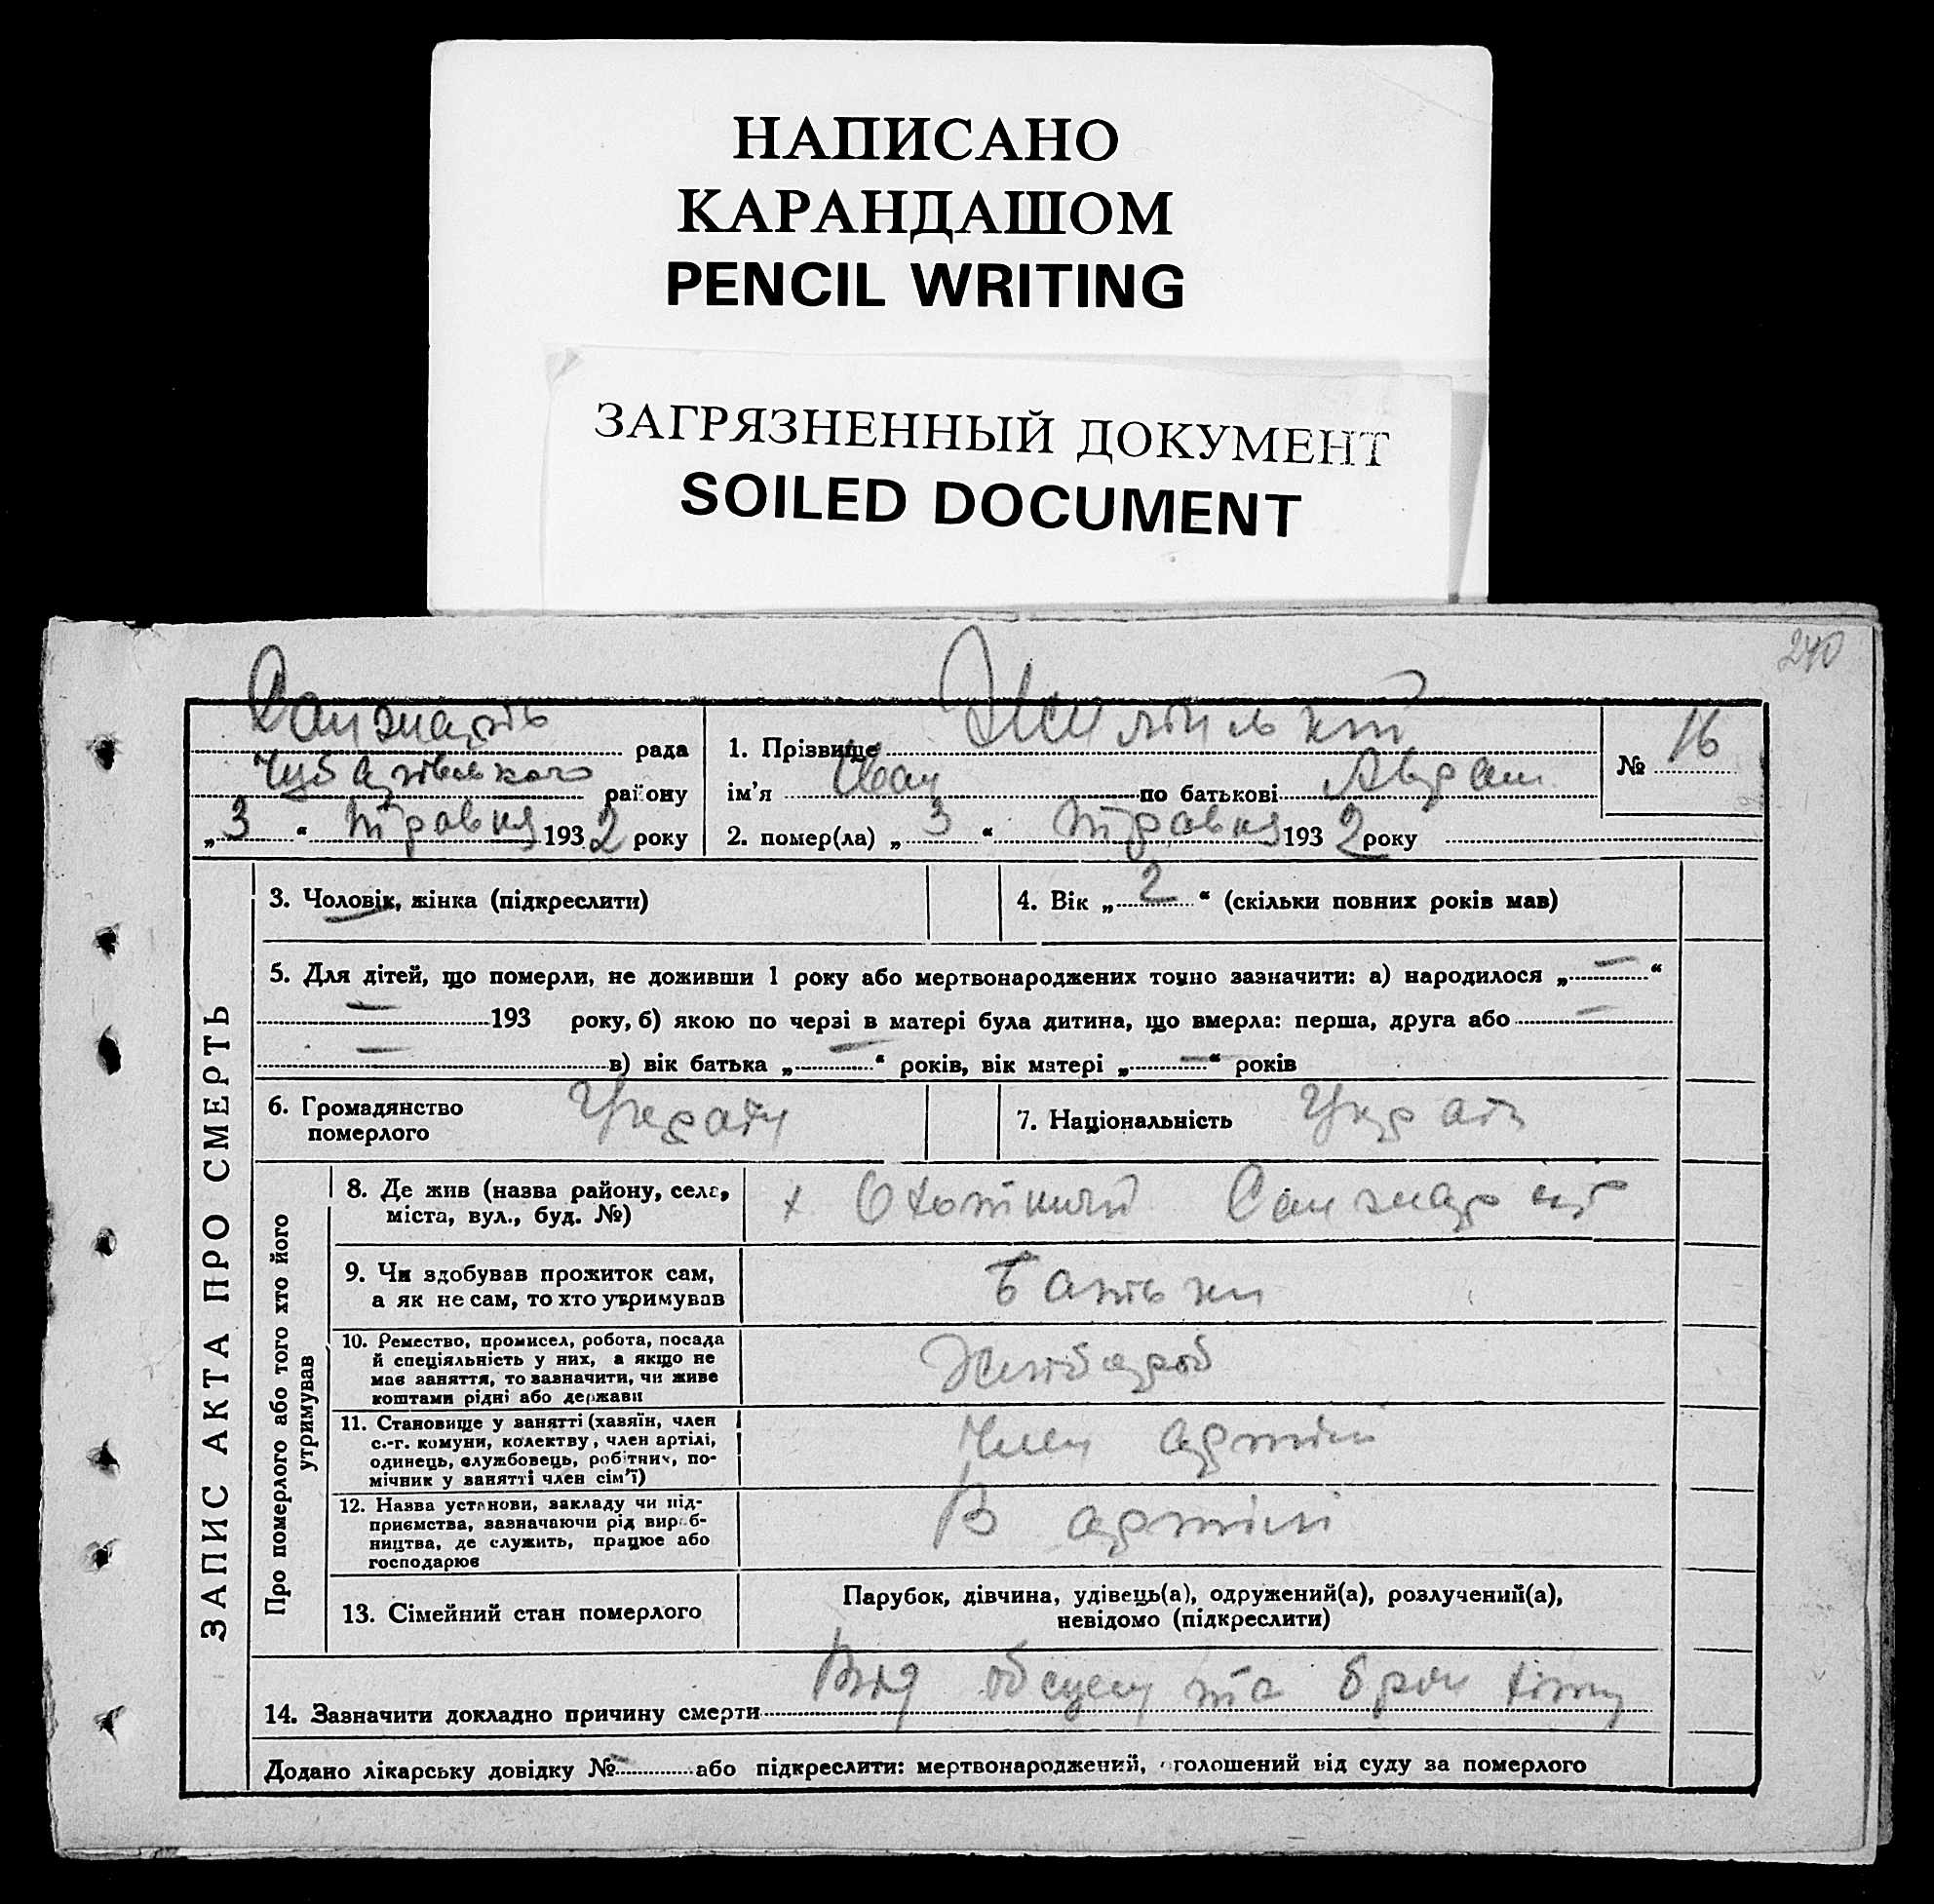 НАПИСАНО
КАРАНДАШОМ
PENCIL WRITING
ЗАГРЯЗНЕННЫЙ ДОКУМЕНТ
SOILED DOCUMENT
240
рада
району
„3“ травня 1932 року
1. Прізвище
ім'я Іван по батькові
№ 16
2. помер(ла) „3“ травня 1932 року
ЗАПИС АКТА ПРО СМЕРТЬ
3. Чоловік, жінка (підкреслити)
4. Вік „2“ (скільки повних років мав)
5. Для дітей, що померли, не доживши 1 року або мертвонароджених точно зазначити: а) народилося „—“
— 193 року, б) якою по черзі в матері була дитина, що вмерла: перша, друга або —
— в) вік батька „—“ років, вік матері „—“ років
6. Громадянство
померлого
7. Національність
Про померлого або того хто його
утримував
8. Де жив (назва району, села,
міста, вул., буд. №)
х
9. Чи здобував прожиток сам,
а як не сам, то хто утримував
Батьки
10. Ремество, промисел, робота, посада
й спеціяльність у них, а якщо не
має заняття, то зазначити, чи живе
коштами рідні або держави
Хлібороб
11. Становище у занятті (хазяїн, член
с.-г. комуни, колективу, член артілі,
одинець, службовець, робітник, по-
мічник у занятті член сім'ї)
Член артілі
12. Назва установи, закладу чи під-
приємства, зазначаючи рід вироб-
ництва, де служить, працює або
господарює
В артілі
13. Сімейний стан померлого
Парубок, дівчина, удівець(а), одружений(а), розлучений(а),
невідомо (підкреслити)
14. Зазначити докладно причину смерти Від та
Додано лікарську довідку № — або підкреслити: мертвонароджений, оголошений від суду за померлого